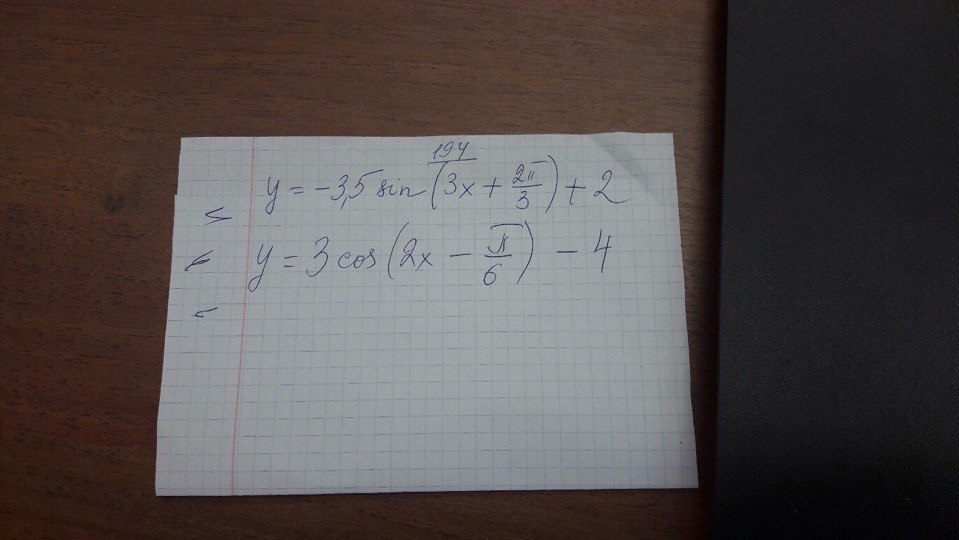 194
y = -3,5 sin (3x + 2π/3) + 2
y = 3 cos (2x - π/6) - 4